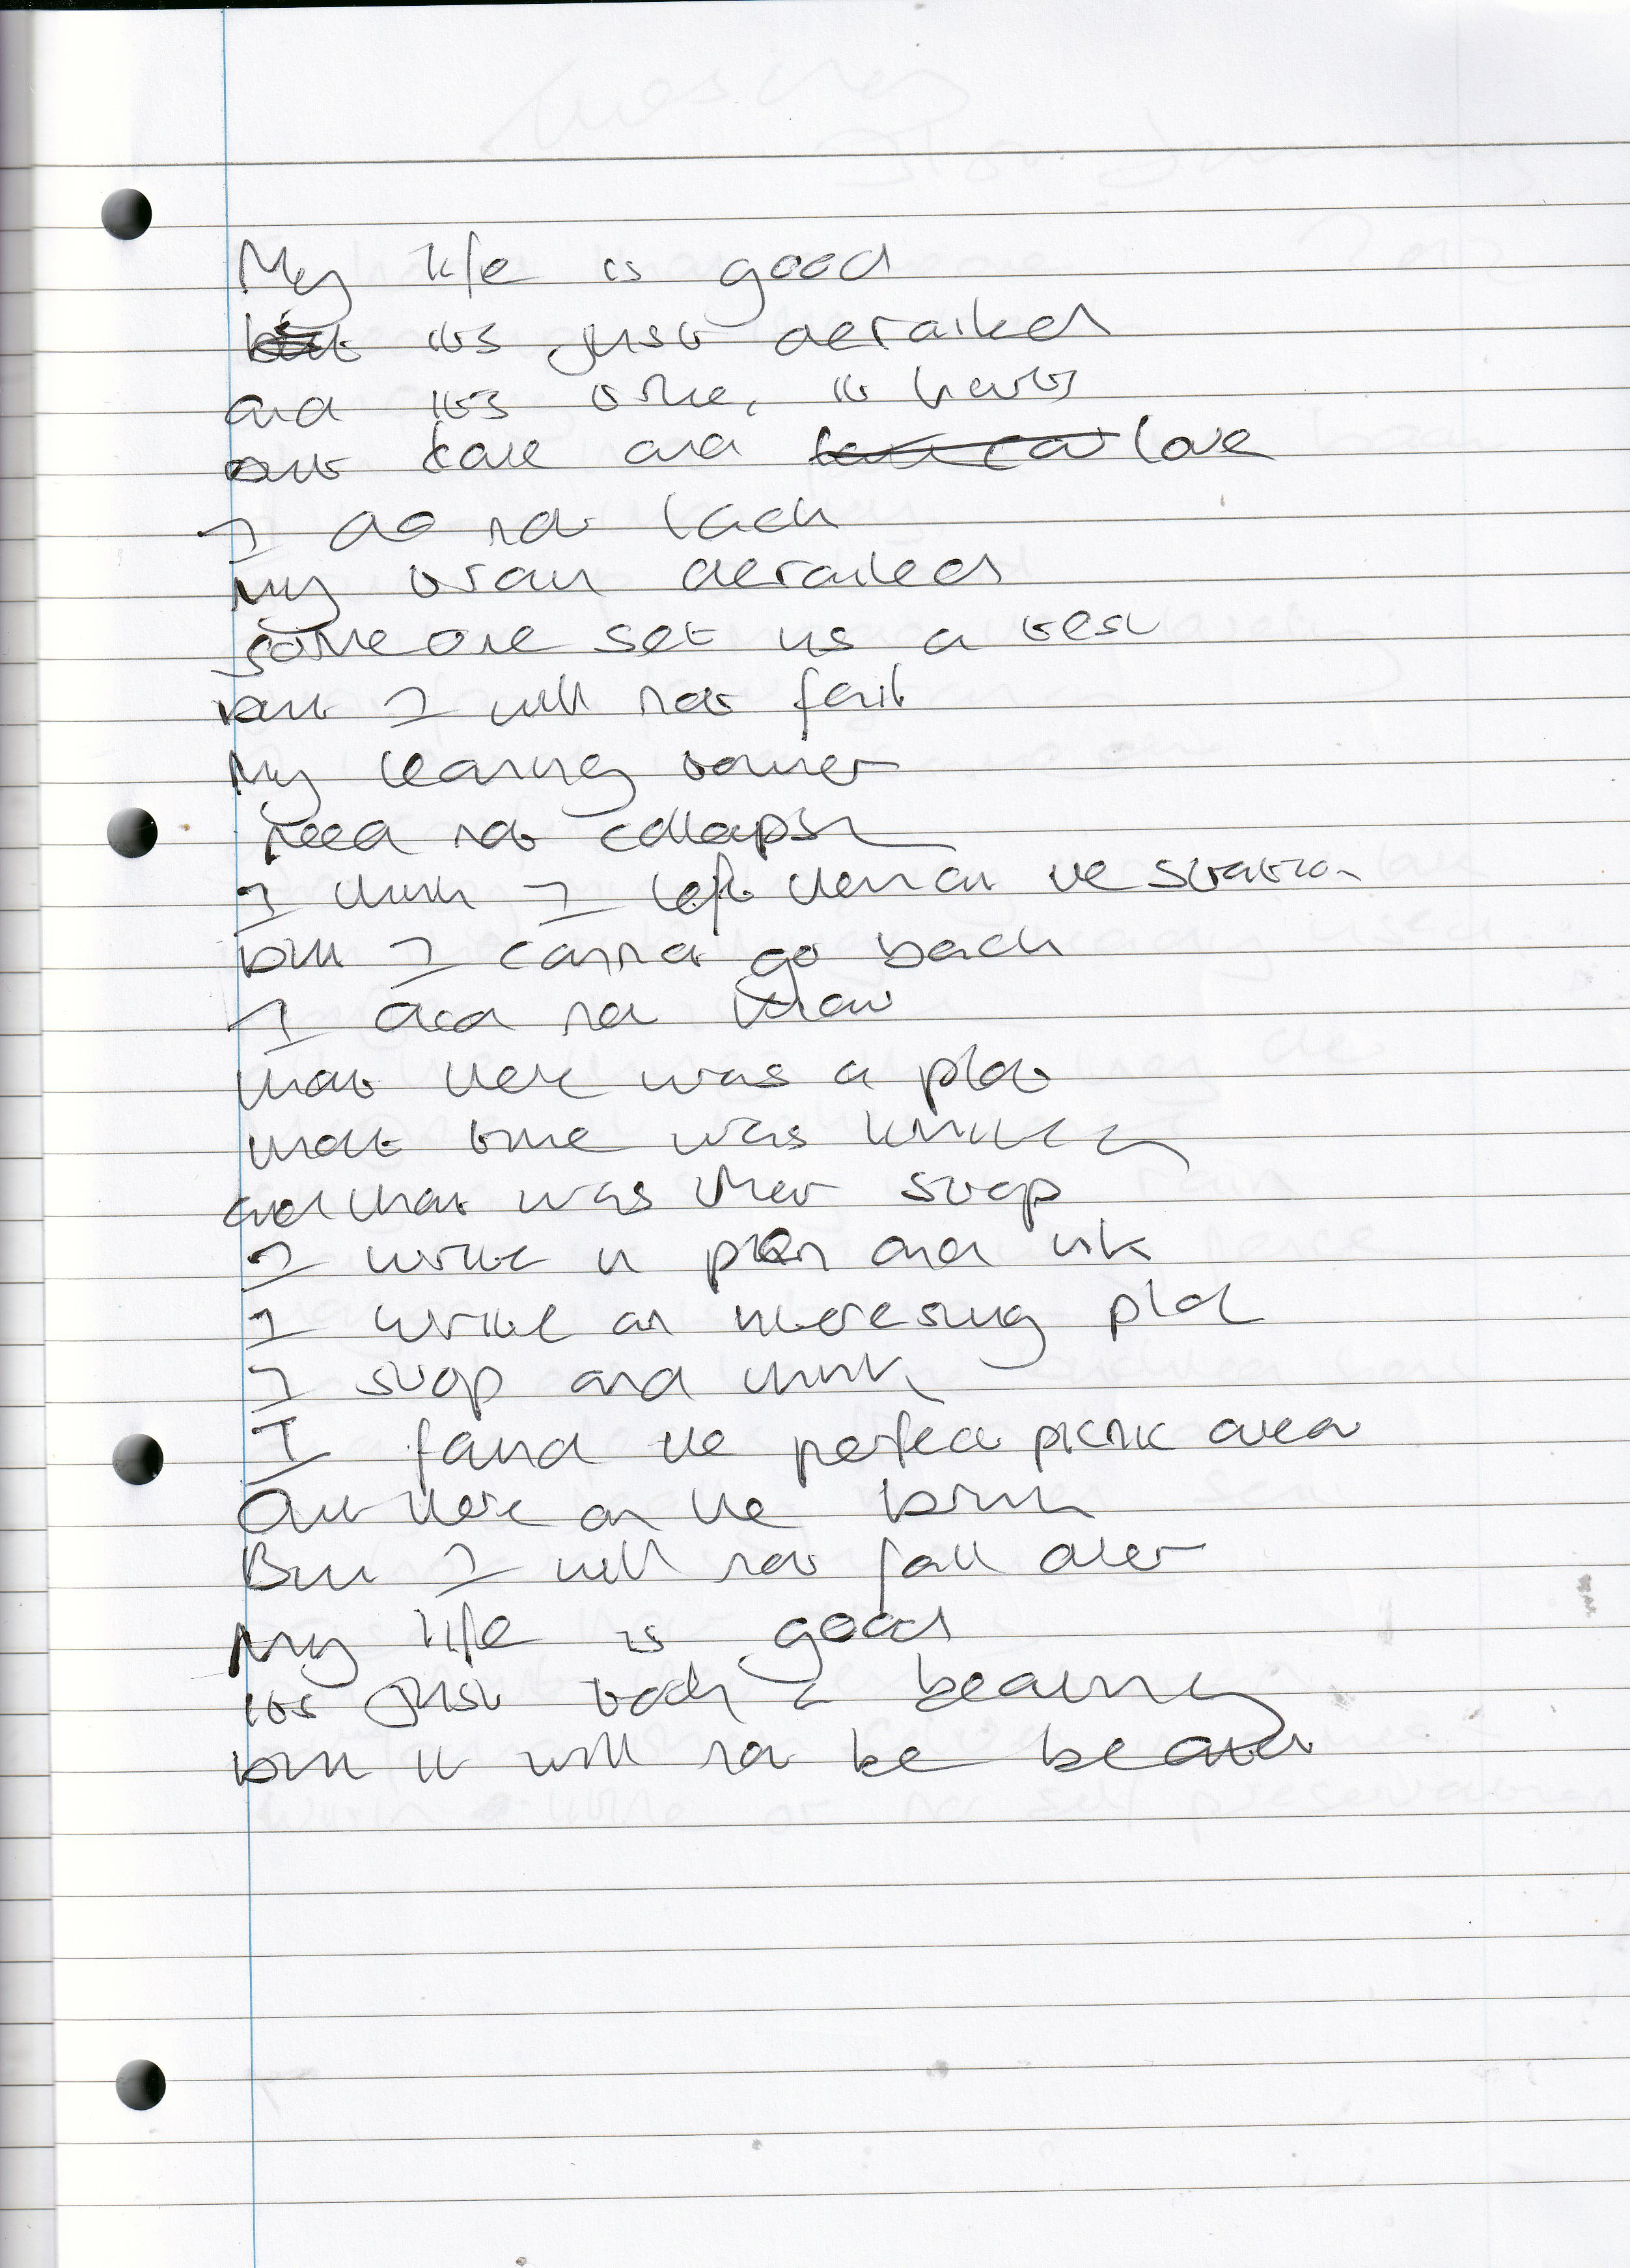 My life is good
but its just derailed
and its true, it hurts
but care and love
I do not lack
My train derailed
Someone set us a test
but I will not fail
My leaning tower
need not collapse
I think I left them at the station
but I cannot go back
I did not know
that there was a plot
that time was
and that was that stop
I write in pen and ink
I write an interesting plot
I stop and think
I found the perfect picnic area
Out here on the brink
But I will not fall over
My life is good
its just tacky &
but it will not be beaten